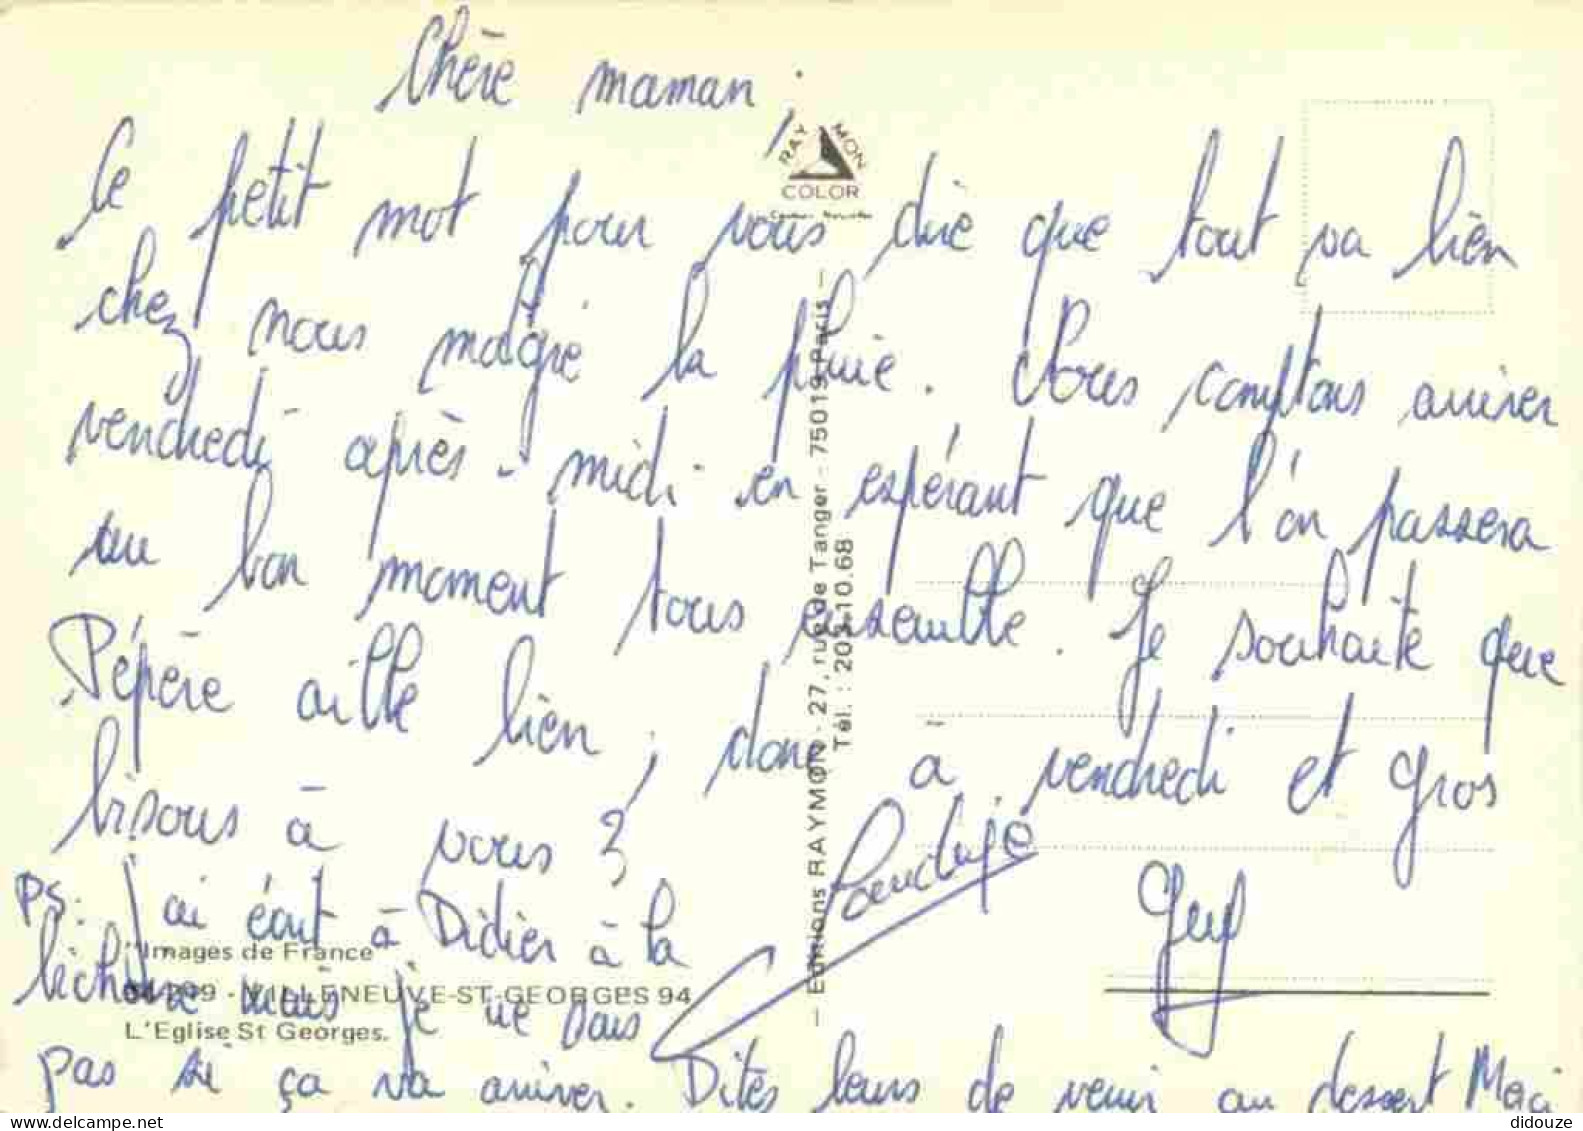 Chère maman,
Ce petit mot pour vous dire que tout va bien
chez nous malgré la pluie. Nous comptons arriver
vendredi après-midi en espérant que l'on passera
un bon moment tous ensemble. Je souhaite que
Pépère aille bien, donc à vendredi et gros
bisous à vous 3
Guy
PS: J'ai écrit à Didier à la
mais je ne sais
pas si ça va arriver. Dites leurs de venir au dessert Merci
RAYMON
COLOR
— Editions RAYMON - 27, rue de Tanger - 75019 Paris —
Tél. : 203.10.68
"Images de France"
VILLENEUVE-ST-GEORGES 94
L'Eglise St Georges.
delcampe.net
didouze